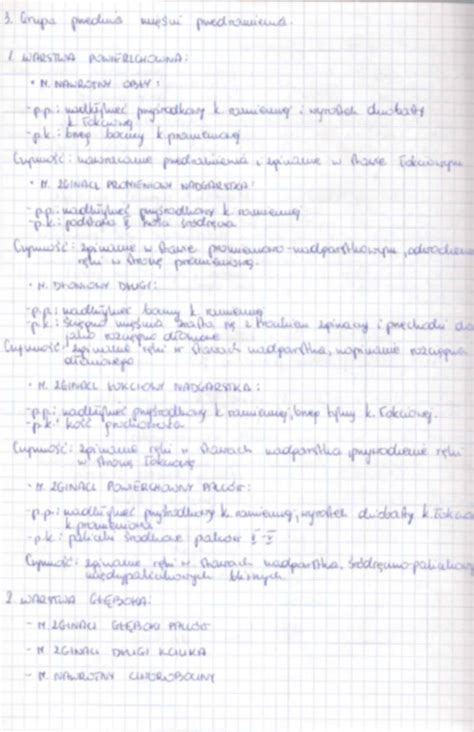 3. Grupa przednia mięśni przedramienia.
1. WARSTWA POWIERZCHOWNA:
• M. NAWROTNY OBŁY:
- p.p.: nadkłykieć przyśrodkowy k. ramiennej i wyrostek dziobasty
k. łokciowej
- p.k.: brzeg boczny k. promieniowej
Czynność: nawracanie przedramienia i zginanie w stawie łokciowym
• M. ZGINACZ PROMIENIOWY NADGARSTKA:
- p.p.: nadkłykieć przyśrodkowy k. ramiennej
- p.k.: podstawa II kości śródręcza
Czynność: zginanie w stawie promieniowo-nadgarstkowym, odwodzenie
ręki w stronę promieniową.
• M. DŁONIOWY DŁUGI:
- p.p.: nadkłykieć boczny k. ramiennej
- p.k.: ścięgno mięśnia zrasta się z troczkiem zginaczy i przechodzi do
jako rozcięgno dłoniowe
Czynność: zginanie ręki w stawach nadgarstka, napinanie rozcięgna
dłoniowego
• M. ZGINACZ ŁOKCIOWY NADGARSTKA:
- p.p.: nadkłykieć przyśrodkowy k. ramiennej, brzeg tylny k. łokciowej.
- p.k.: kość grochowata
Czynność: zginanie ręki w stawach nadgarstka, przywodzenie ręki
w stronę łokciową
• M. ZGINACZ POWIERZCHOWNY PALCÓW:
- p.p.: nadkłykieć przyśrodkowy k. ramiennej, wyrostek dziobasty k. łokcio
k. promieniowa
- p.k.: paliczki środkowe palców II-V
Czynność: zginanie ręki w stawach nadgarstka, śródręczno-paliczkow
międzypaliczkowych bliższych
2. WARSTWA GŁĘBOKA:
- M. ZGINACZ GŁĘBOKI PALCÓW
- M. ZGINACZ DŁUGI KCIUKA
- M. NAWROTNY CZWOROBOCZNY